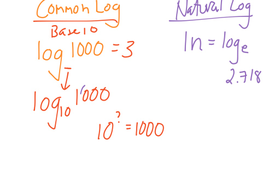 Common Log
Base 10
log 1000 = 3
log₁₀ 1000
10^? = 1000
Natural Log
ln = logₑ
2.718